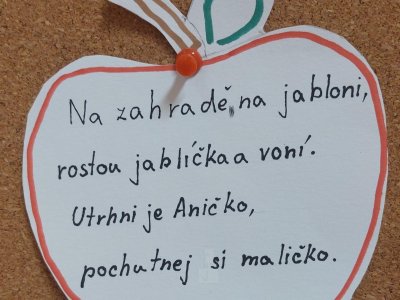 Na zahradě, na jabloni,
rostou jablíčka a voní.
Utrhni je Aničko,
pochutnej si maličko.